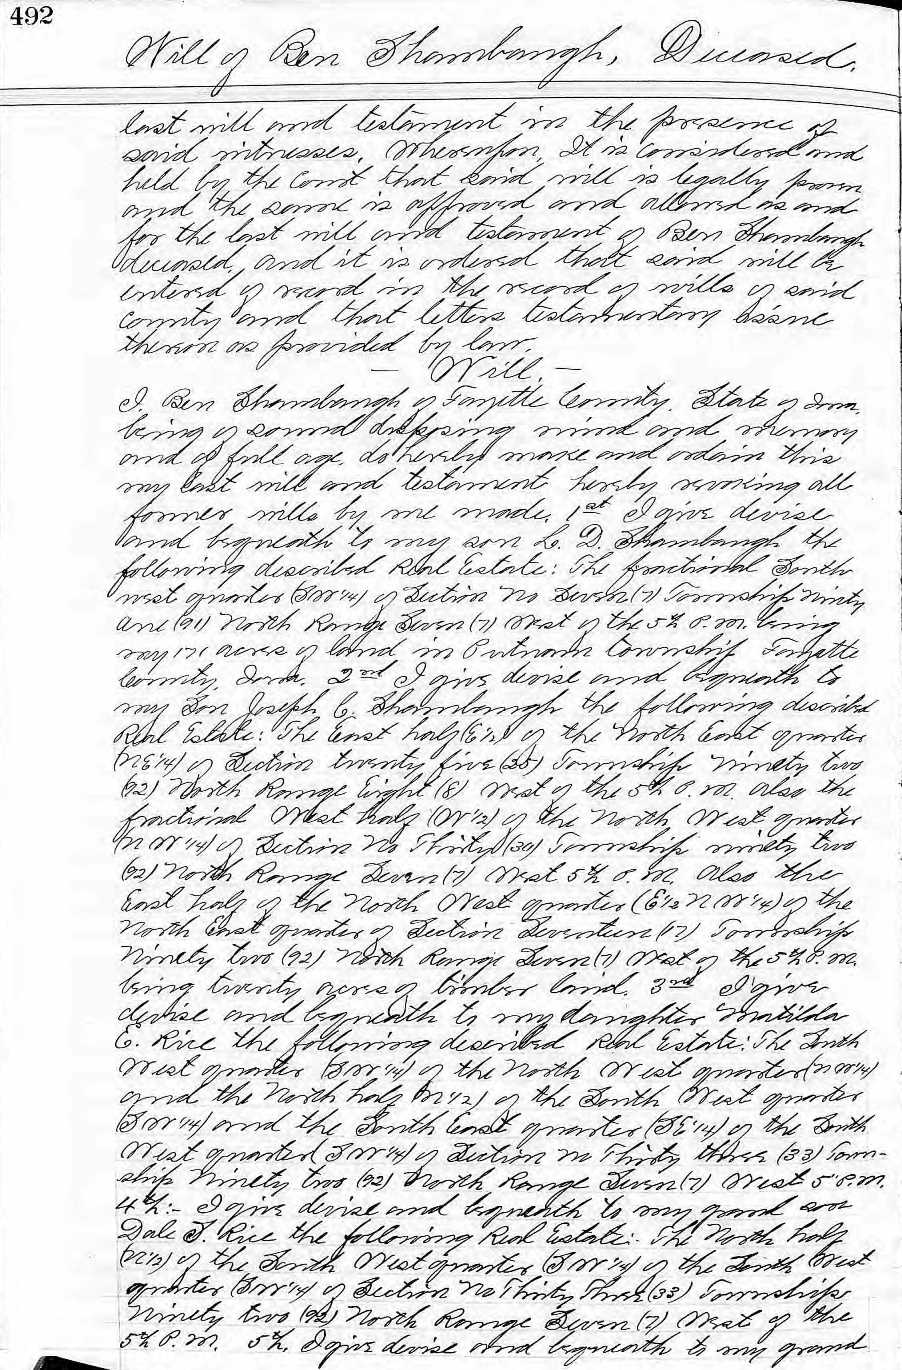 492
Will of Ben Shambaugh, Deceased.
last will and testament in the presence of
said witnesses, Whereupon, It is considered and
held by the Court that said will is legally proven
and the same is approved and allowed as and
for the last will and testament of Ben Shambaugh
deceased, and it is ordered that said will be
entered of record in the record of wills of said
County and that letters testamentary issue
thereon as provided by law.
— Will. —
I. Ben Shambaugh of Fayette County. State of Iowa.
being of sound disposing mind and memory
and of full age, do hereby make and ordain this
my last will and testament hereby revoking all
former wills by me made. 1st I give devise
and bequeath to my son L. D. Shambaugh the
following described Real Estate: The fractional South
west quarter (SW 1/4) of Section No Seven (7) Township Ninty
One (91) North Range Seven (7) West of the 5th P.M. being
my 171 acres of land in Putnam township Fayette
County, Iowa. 2nd I give devise and bequeath to
my Son Joseph C. Shambaugh the following described
Real Estate: The East half (E 1/2) of the North East quarter
(NE 1/4) of Section twenty five (25) Township Ninety two
(92) North Range Eight (8) West of the 5th P.M. also the
fractional West half (W 1/2) of the North West quarter
(N W 1/4) of Section No Thirty (30) Township ninety two
(92) North Range Seven (7) West 5th P.M. Also the
East half of the North West quarter (E 1/2 N W 1/4) of the
North East quarter of Section Seventeen (17) Township
Ninety two (92) North Range Seven (7) West of the 5th P.M.
being twenty acres of timber land. 3rd I give
devise and bequeath to my daughter Matilda
E. Rice the following described Real Estate: The South
West quarter (SW 1/4) of the North West quarter (N W 1/4)
and the North half (N 1/2) of the South West quarter
(S W 1/4) and the South East quarter (SE 1/4) of the South
West quarter (S W 1/4) of Section No Thirty three (33) Town-
ship Ninety two (92) North Range Seven (7) West 5" P.M.
4th:- I give devise and bequeath to my grand son
Dale S. Rice the following Real Estate:- The North half
(N 1/2) of the South West quarter (S W 1/4) of the South West
quarter (S W 1/4) of Section No Thirty Three (33) Township
Ninety two (92) North Range Seven (7) West of the
5th P.M. 5th, I give devise and bequeath to my grand